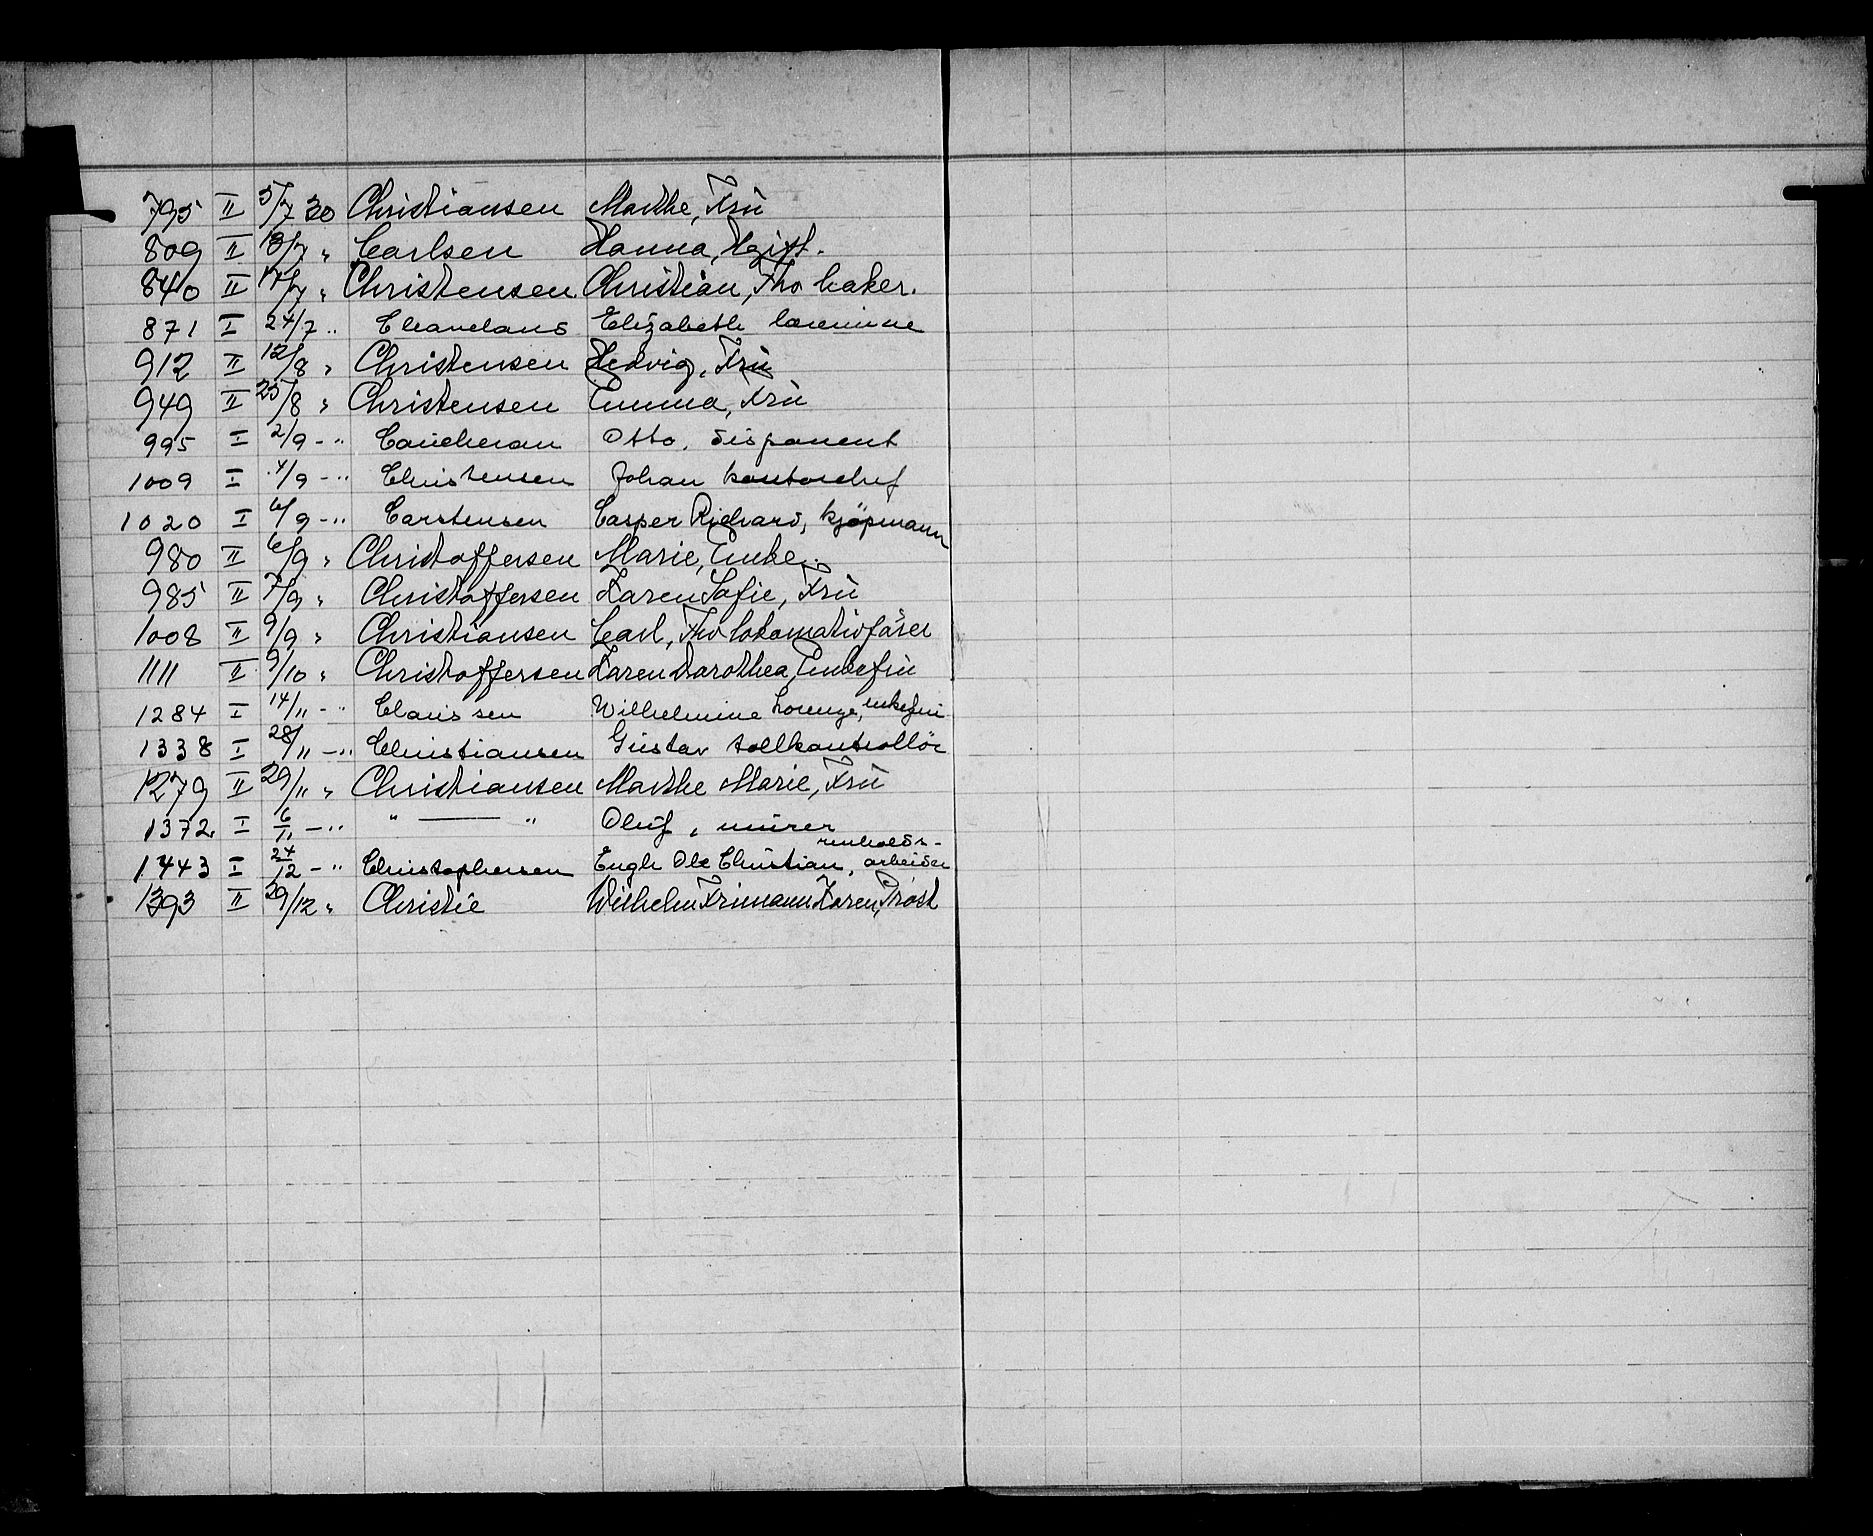 795 II 5/7 30 Christiansen Marthe, Frü
809 II 13/7 " Carlsen Hanna, Hgift.
840 II 17/7 " Christensen Christian, Fhv baker.
871 I 24/7 " Elisabeth lærerinne
912 II 12/8 " Christensen Hedvig, Frü
949 II 25/8 " Christensen Emma, Frü
995 I 2/9 - " Otto, disponent
1009 I 4/9 - " Christensen Johan kontorchef
1020 I 6/9 - " Carstensen Casper Richard, kjöpmann
980 II 6/9 " Christoffersen Marie, Enke.
985 II 7/9 " Christoffersen Karen Sofie, Frü
1008 II 9/9 " Christiansen Carl, Fhv lokomotivfører
1111 II 9/10 " Christoffersen Karen Dorothea, Enkefrü
1284 I 14/11 - " Claüssen Wilhelmine Lorenze, enkefrü
1338 I 28/11 - " Christiansen Güstav tollkontrollör
1279 II 29/11 " Christiansen Marthe Marie, Frü
1372. I 6/11 - " " — " Olüf, mürer
1443 I 24/12 - " Christophersen Ole Christian, renholds-arbeider
1393 II 29/12 " Christie Wilhelm Frimann Koren, Prost